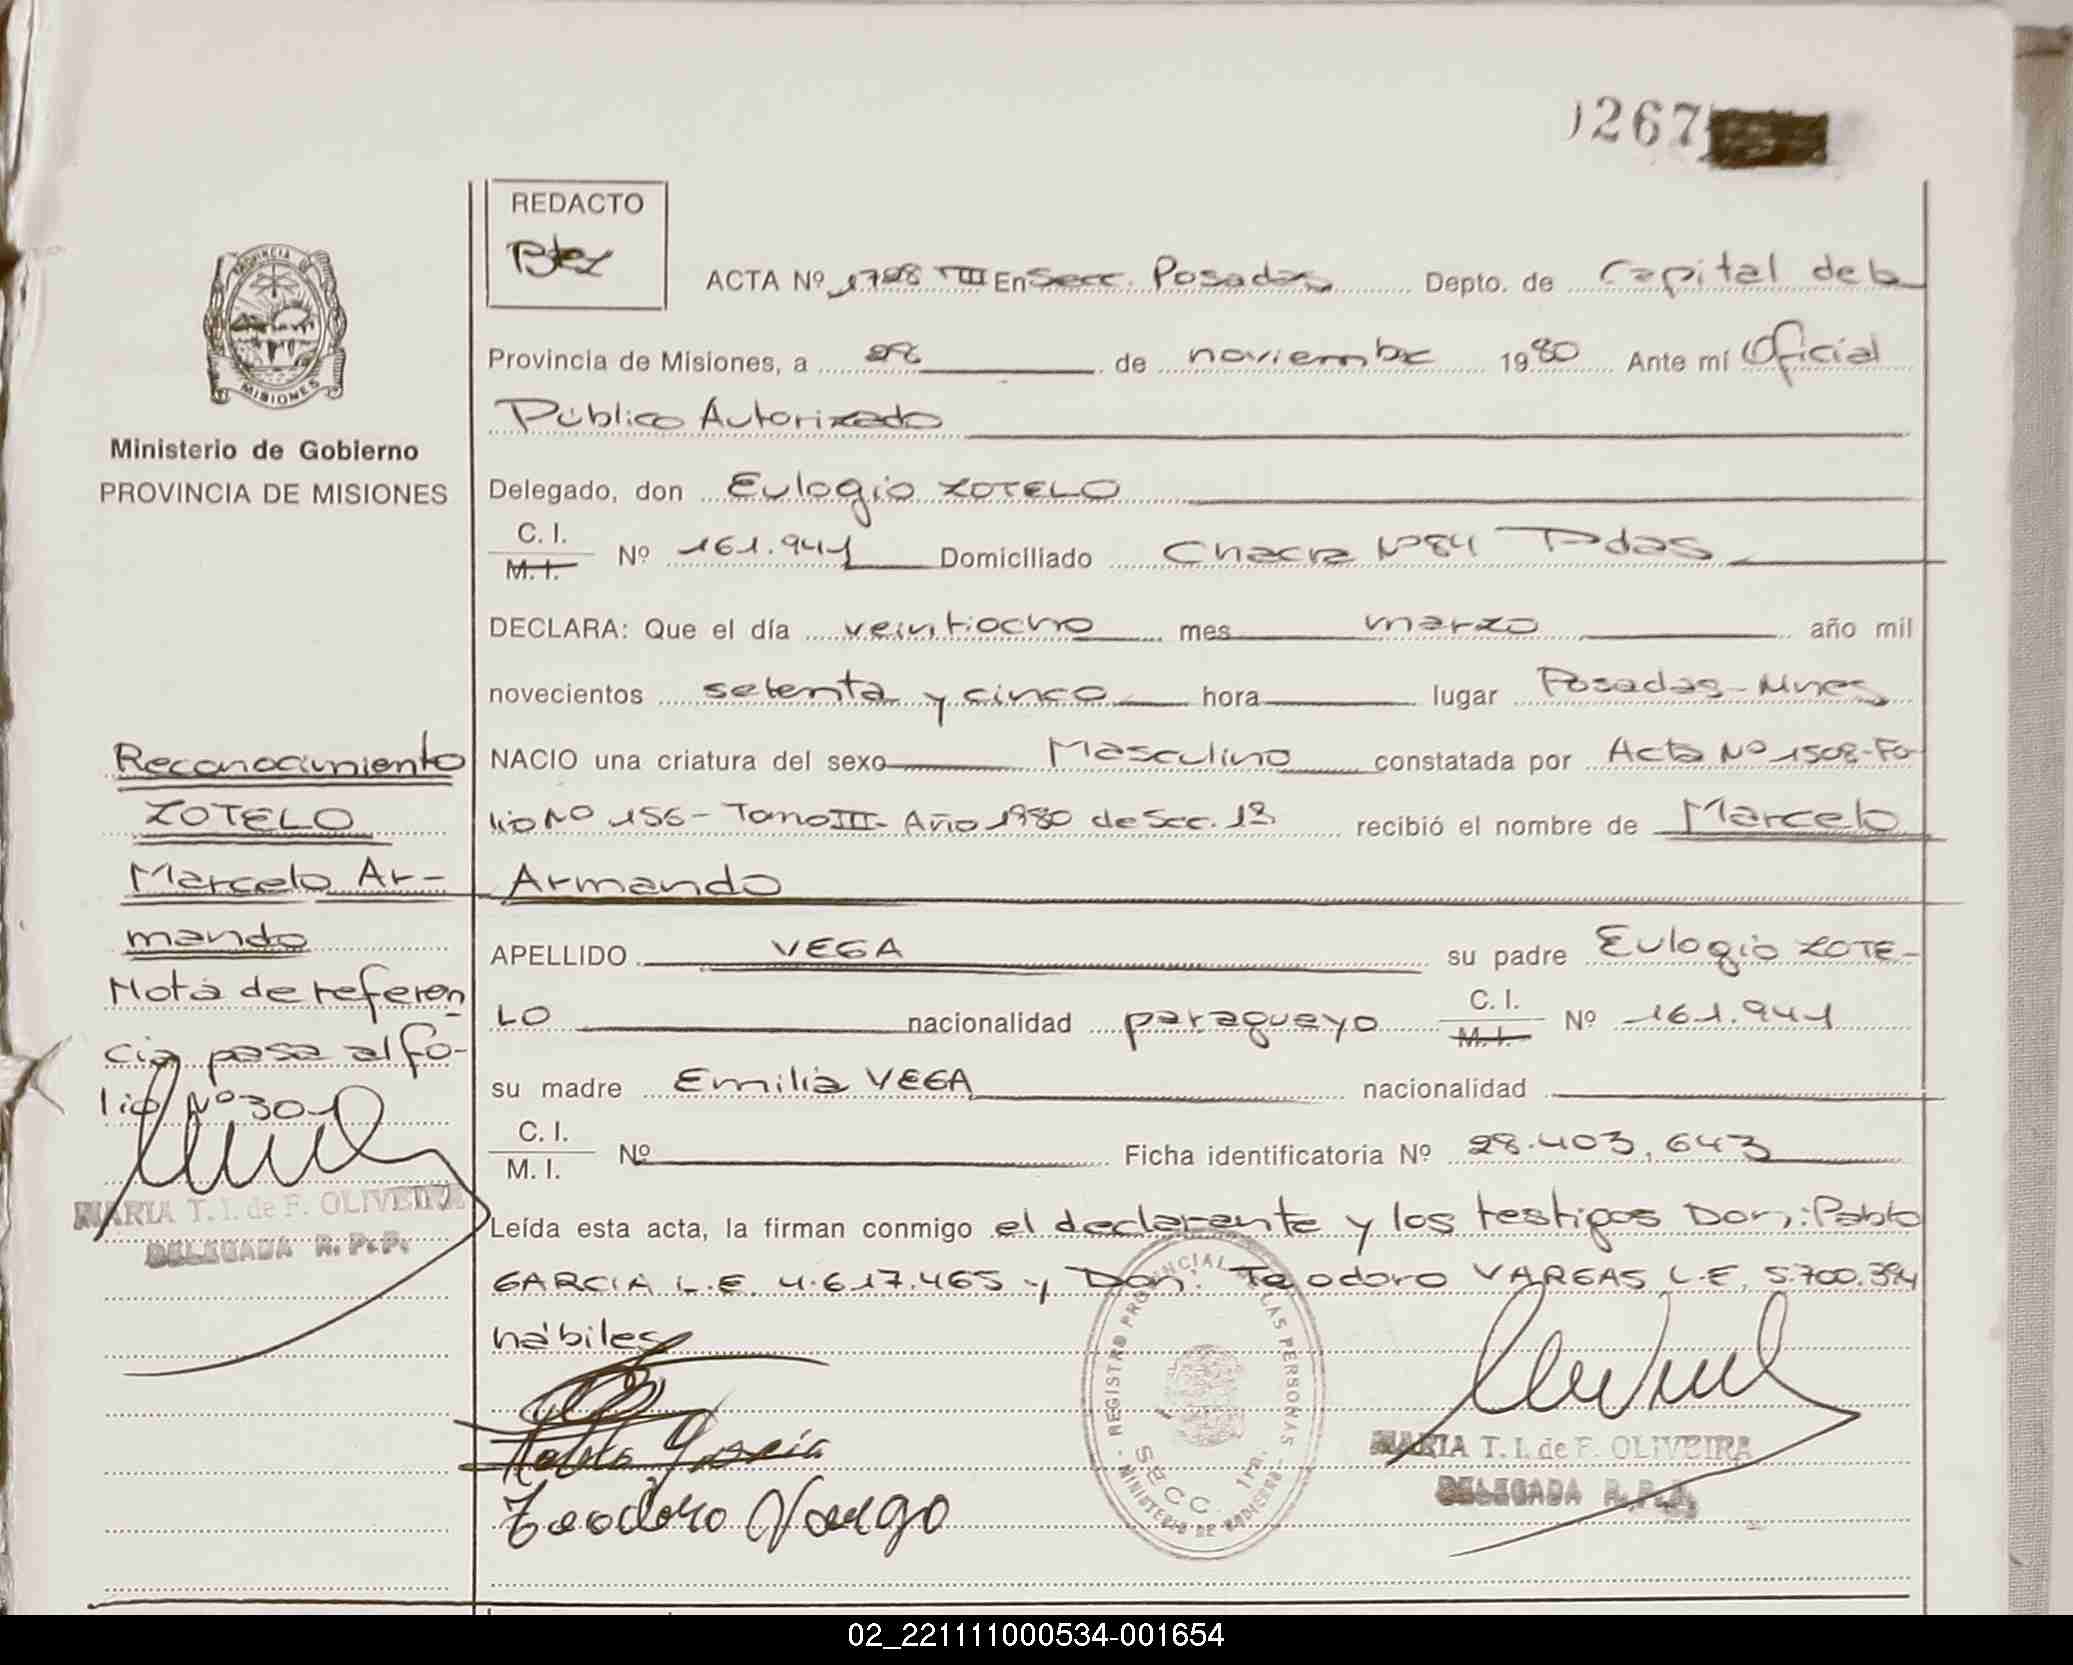 0267
REDACTO
Btez
ACTA Nº 1798 TIII En Secc. Posadas Depto. de Capital de la
PROVINCIA DE
MISIONES
Provincia de Misiones, a de noviembre 1980 Ante mí Oficial
Público Autorizado
Ministerio de Gobierno
PROVINCIA DE MISIONES
Delegado, don Eulogio ZOTELO
C. I.
M. I. Nº 161.941 Domiciliado Chacra Nº 84 Pdas
DECLARA: Que el día veintiocho mes marzo año mil
novecientos setenta y cinco hora lugar Posadas-Mnes
NACIO una criatura del sexo Masculino constatada por Acta Nº 1508-Fo-
lio Nº 156- Tomo III- Año 1980 de Scc. 1ª recibió el nombre de Marcelo
Armando
APELLIDO VEGA su padre Eulogio ZOTE-
LO nacionalidad paraguayo C. I. M. I. Nº 161.941
su madre Emilia VEGA nacionalidad
C. I.
M. I. Nº Ficha identificatoria Nº 28.403,643
Leída esta acta, la firman conmigo el declarante y los testigos Don: Pablo
GARCIA L.E. 4.617.465 y Don: Teodoro VARGAS L.E. 5.700.394
hábiles
Reconocimiento
ZOTELO
Marcelo Ar-
mando
Nota de referen
cia pasa al fo-
lio Nº 301
MARIA T. I. de F. OLIVEIRA
DELEGADA R. P. P.
Pablo Garcia
Teodoro Vargo
REGISTRO PROVINCIAL DE LAS PERSONAS
MINISTERIO DE GOBIERNO
SECC. 1ra.
MARIA T. I. de F. OLIVEIRA
DELEGADA R. P. P.
02_221111000534-001654